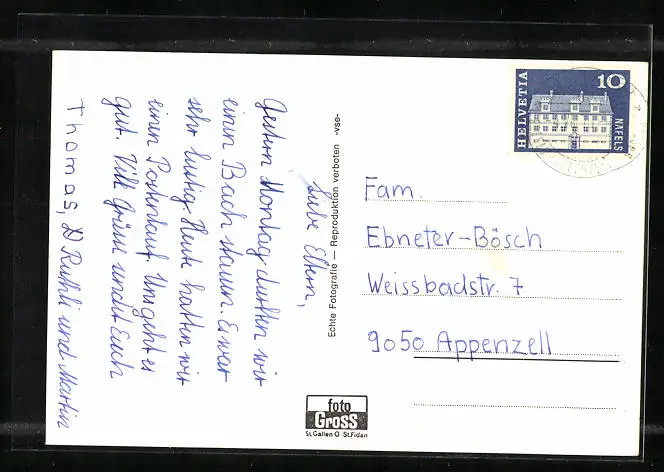 Liebe Eltern,
Gestern, Montag durften wir
einen Bach stauen. Es war
sehr lustig. Heute hatten wir
einen Postenlauf. Uns geht es
gut. Viele Grüsse sendet Euch
Thomas, Ruthli und Martin
Echte Fotografie – Reproduktion verboten -vse-
HELVETIA
10
NÄFELS
Fam.
Ebneter-Bösch
Weissbadstr. 7
9050 Appenzell
foto
Gross
St.Gallen O St.Fiden